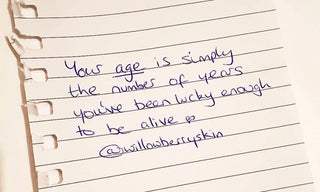 Your age is simply
the number of years
you've been lucky enough
to be alive
@willowberryskin